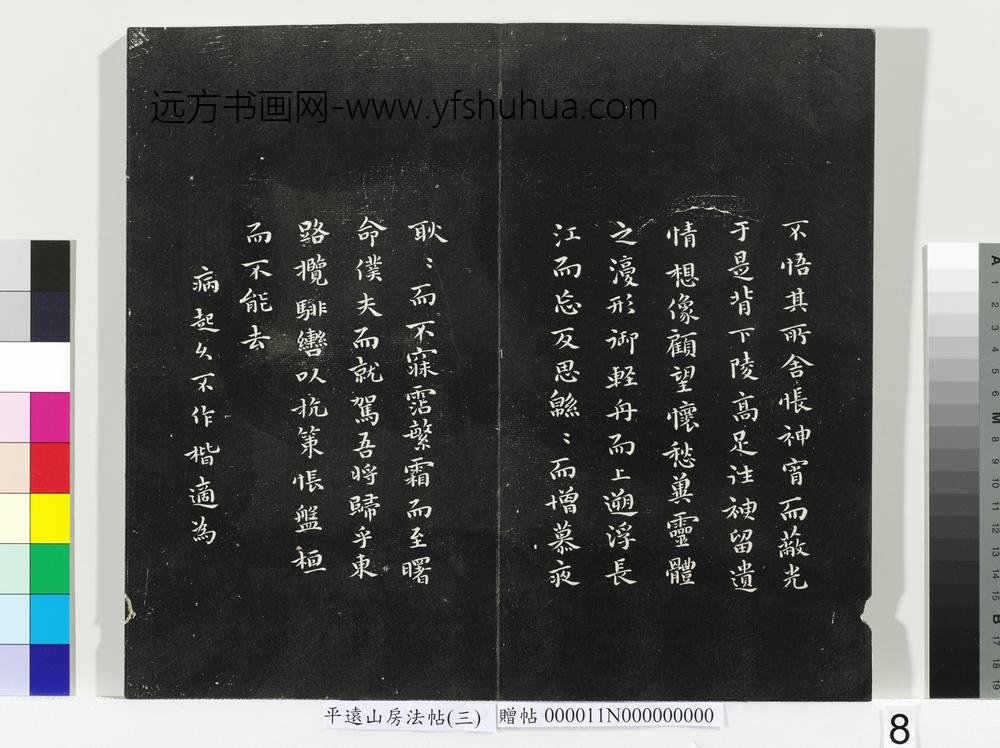 远方书画网-www.yfshuhua.com
不悟其所舍悵神宵而蔽光
于是背下陵高足往神留遺
情想像顧望懷愁冀靈體
之濅形御軽舟而上遡浮長
江而忘反思緜〻而增慕夜
耿〻而不寐霑繁霜而至曙
命僕夫而就駕吾將歸乎東
路攬騑轡以抗策悵盤桓
而不能去
病起久不作楷適為
平遠山房法帖(三)
贈帖 000011N000000000
8
A 1 2 3 4 5 6 M 8 9 10 11 12 13 14 15 B 17 18 19